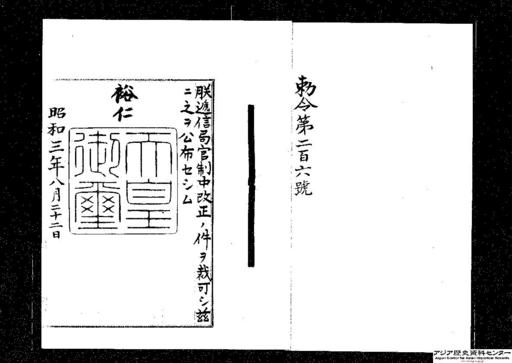 勅令第二百六號
朕遞信局官制中改正ノ件ヲ裁可シ玆
ニ之ヲ公布セシム
裕仁
天皇
御璽
昭和三年八月二十二日
アジア歴史資料センター
Japan Center for Asian Historical Records